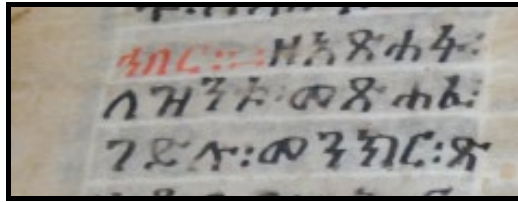 ንክር፡፡ ዘአጽሐፋ፡
ለዝንቱ፡ መጽሐፈ፡
ገድሉ፡ መንክር፡ ጽ